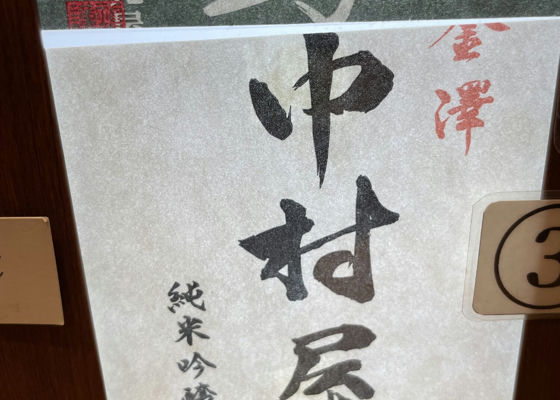 金澤
中村屋
純米吟醸
③